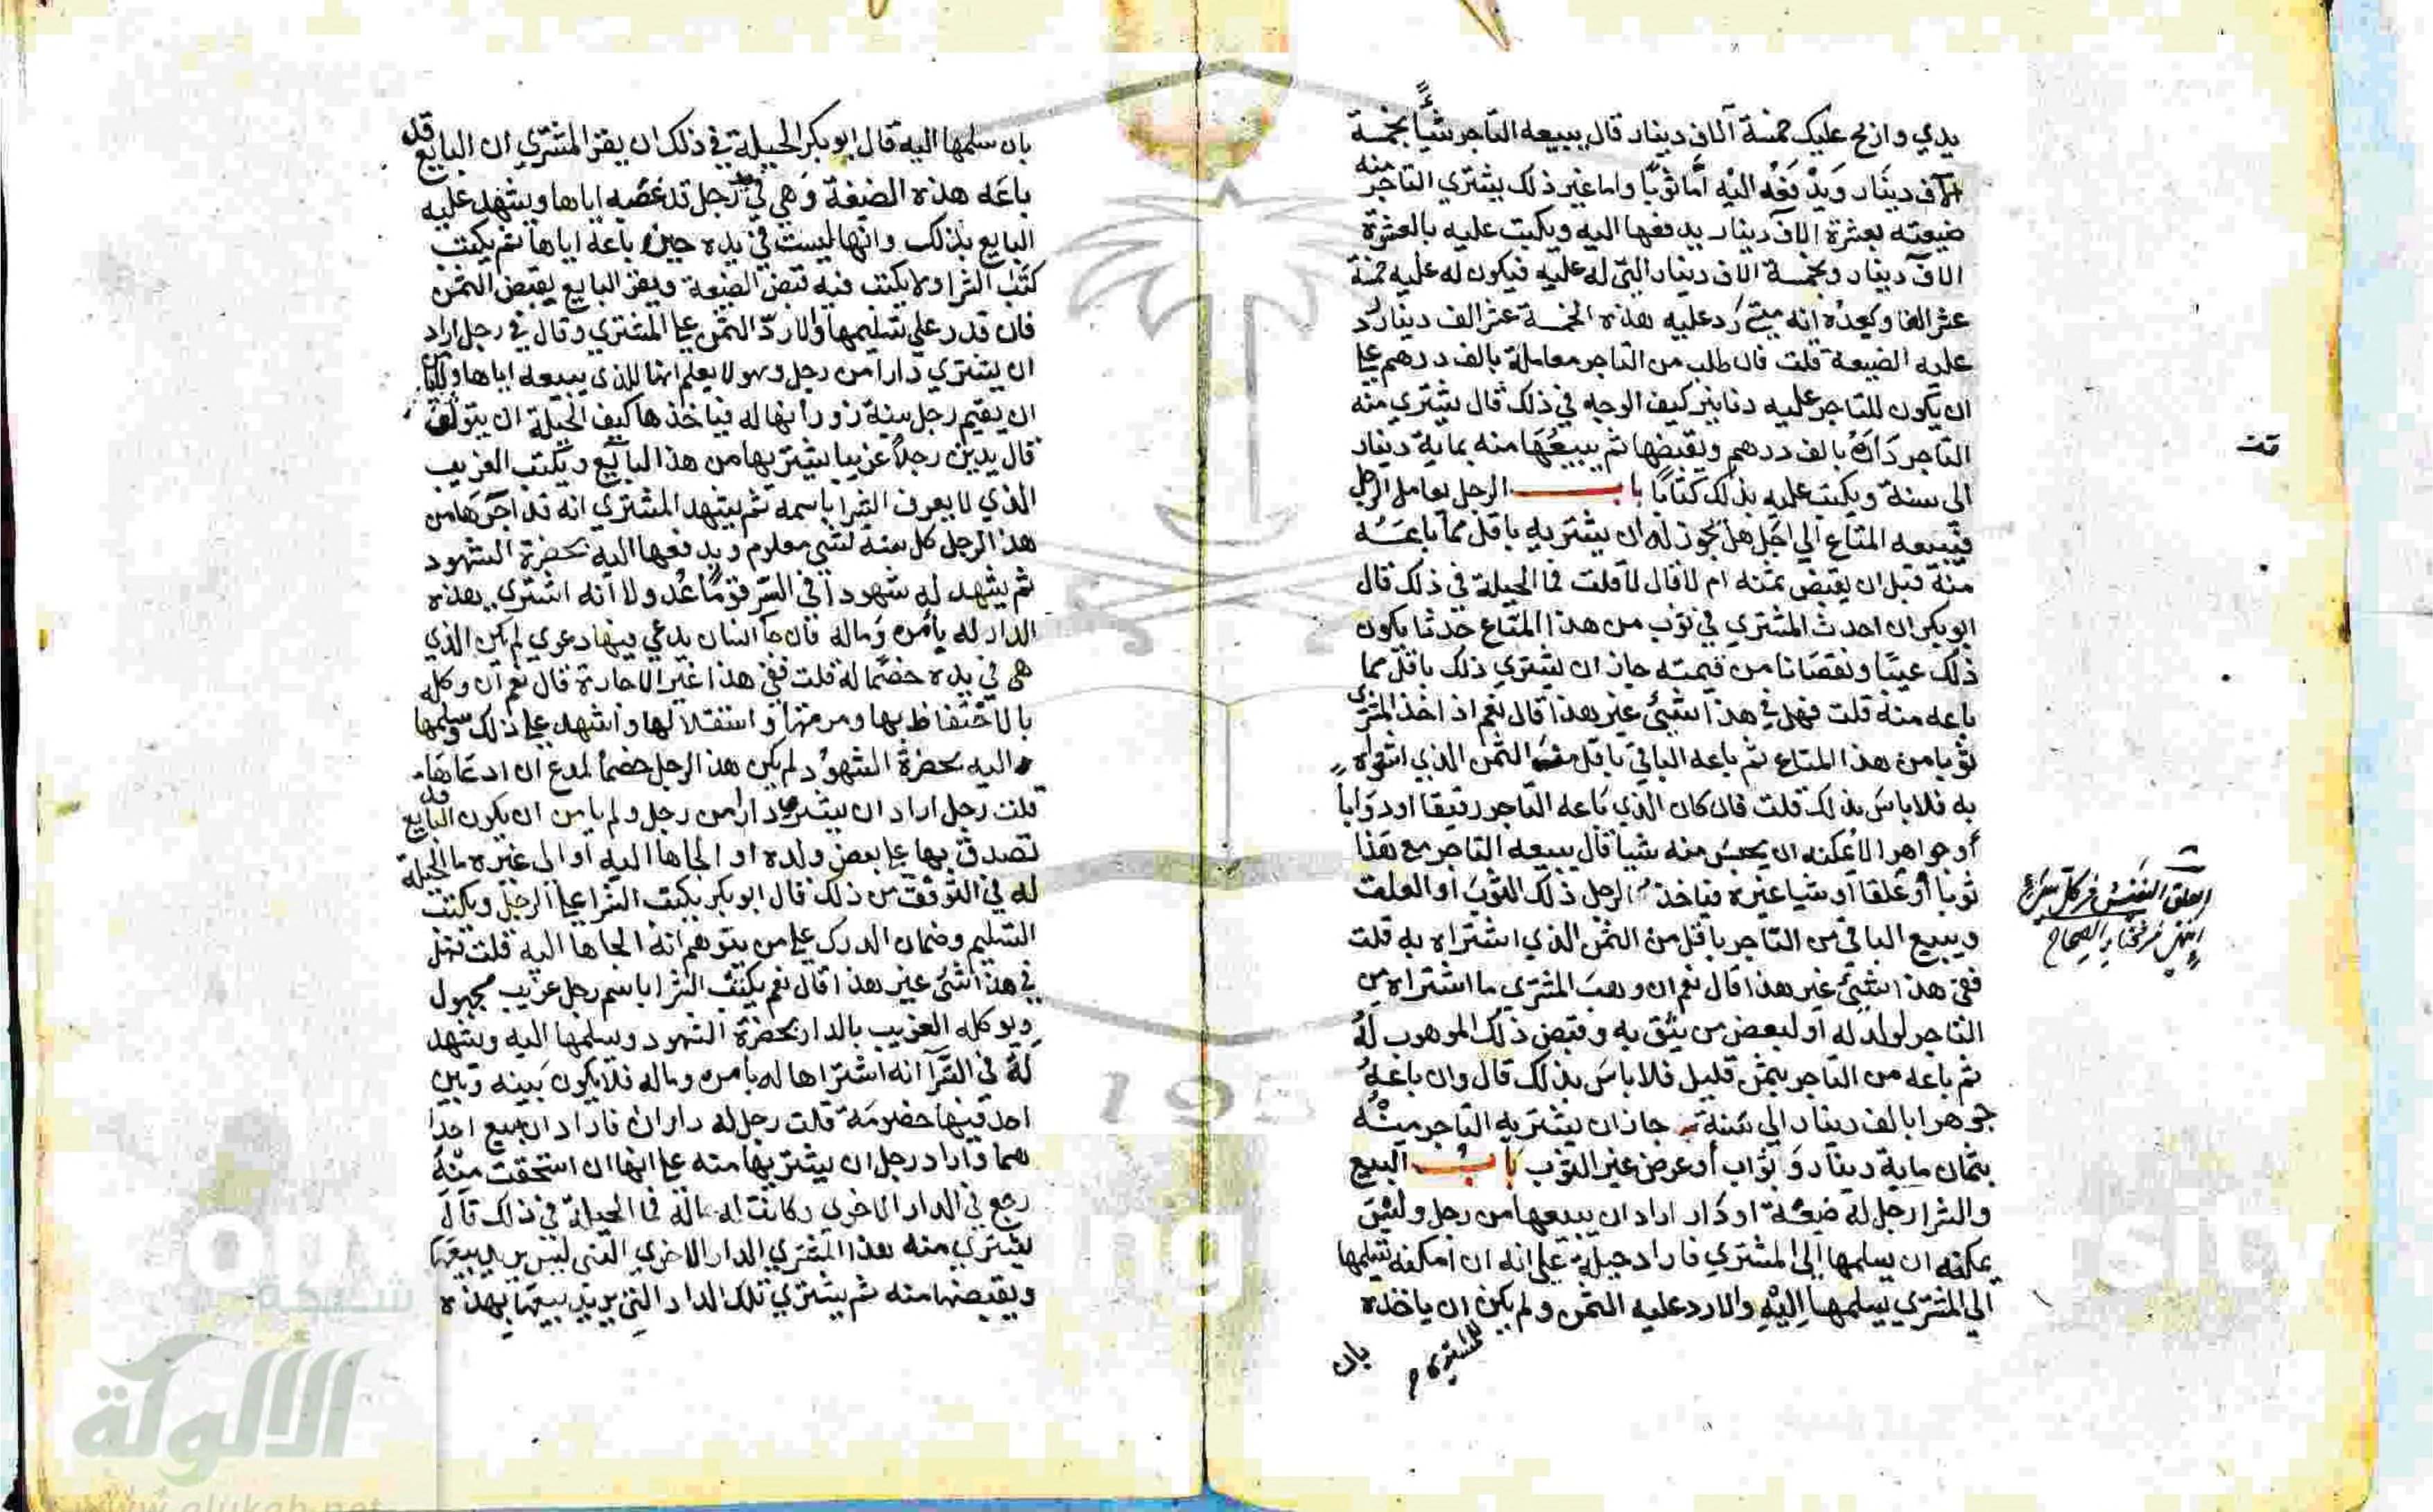 يدي واربح عليك خمسة آلاف دينار قال يبيعه التاجر شيئًا بخمسة
آلاف دينار ويدفعه اليه أما ثوبًا واما غير ذلك يشتري التاجر منه
ضيعته بعشرة الاف دينار يدفعها اليه ويكتب عليه بالعشرة
الاف دينار وبخمسة الاف دينار التي له عليه فيكون له عليه خمسة
عشر الفا ويعده انه متى رد عليه هذه الخمسة عشر الف دينار رد
عليه الضيعة قلت فان طلب من التاجر معاملة بالف درهم على
ان يكون للتاجر عليه دنانير كيف الوجه في ذلك قال يشتري منه
التاجر داره بالف درهم ويقبضها ثم يبيعها منه بماية دينار
الى سنة ويكتب عليه بذلك كتابًا باب الرجل يعامل الرجل
فيبيعه المتاع الى اجل هل يجوز له ان يشتريه باقل مما باعه
منه قبل ان يقبض ثمنه ام لا قال لا قلت فما الحيلة في ذلك قال
ابو بكر ان احدث المشتري في ثوب من هذا المتاع حدثا يكون
ذلك عيبًا ونقصانا من قيمته جاز ان يشتري ذلك باقل مما
باعه منه قلت فهل في هذا شيئ غير هذا قال نعم اذا اخذ المشتري
ثوبا من هذا المتاع ثم باعه الباقي باقل من الثمن الذي اشتراه
به فلا باس بذلك قلت فان كان الذي باعه التاجر رقيقا او دوابًا
أو جواهر لا يمكنه ان يحبس منه شيا قال يبيعه التاجر مع هذا
ثوبا أو علقا او شيا غيره فياخذ الرجل ذلك الثوب او العلق
ويبيع الباقي من التاجر باقل من الثمن الذي اشتراه به قلت
ففي هذا شيئ غير هذا قال نعم ان وهب المشتري ما اشتراه من
التاجر لولد له او لبعض من يثق به وقبض ذلك الموهوب له
ثم باعه من التاجر بثمن قليل فلا باس بذلك قال وان باعه
جوهرا بالف دينار الى سنة جاز ان يشتريه التاجر منه
بثمان ماية دينار وثواب أو عرض غير الثوب باب البيع
والشرا رجل له ضيعة او دار اراد ان يبيعها من رجل وليس
يمكنه ان يسلمها الى المشتري فاراد حيلة على انه ان امكنه تسليمها
الى المشتري يسلمها اليه والا رد عليه الثمن ولم يكن ان ياخذه
للمشتري
بان
قلت
العلق النفيس من كل شيء
مختار الصحاح
بان سلمها اليه قال ابو بكر الحيلة في ذلك ان يقر المشتري ان البايع قد
باعه هذه الضيعة وهي في يد رجل قد غصبه اياها ويشهد عليه
البايع بذلك وانها ليست في يده حين باعه اياها ثم يكتب
كتاب الشرا ولا يكتب فيه قبض الضيعة ويقر البايع بقبض الثمن
فان قدر على تسليمها والا رد الثمن على المشتري وقال في رجل اراد
ان يشتري دارا من رجل وهو لا يعلم انها للذي يبيعه اياها
ان يقيم رجل بينة زور انها له فياخذها كيف الحيلة ان يتوثق
قال يدس رجلا غريبا يشتريها من هذا البايع ويكتب الغريب
الذي لا يعرف الشرا باسمه ثم يشهد المشتري انه قد آجرها من
هذا الرجل كل سنة بشي معلوم ويدفعها اليه بحضرة الشهود
ثم يشهد له شهودا في السر قومًا عدولا أنه اشترى هذه
الدار له بأمره وماله فان جا انسان يدعي فيها دعوى لم يكن الذي
هي في يده خصمًا له قلت ففي هذا غير الاجارة قال نعم ان وكله
بالاحتفاظ بها ومرمتها واستغلالها واشهد على ذلك وسلمها
اليه بحضرة الشهود لم يكن هذا الرجل خصما لمدع ان ادعاها
قلت رجل اراد ان يشتري دارا من رجل ولم يامن ان يكون البايع قد
تصدق بها على بعض ولده او الجاها اليه او الى غيره ما الحيلة
له في التوثق من ذلك قال ابو بكر يكتب الشرا على الرجل ويكتب
التسليم وضمان الدرك على من يتوهم انه الجاها اليه قلت فهل
في هذا شئ غير هذا قال نعم يكتب الشرا باسم رجل غريب مجهول
ويوكله الغريب بالدار بحضرة الشهود وسلمها اليه ويشهد
له في السر أنه اشتراها له بامره وماله فلا يكون بينه وبين
احد فيها خصومة قلت رجل له داران فاراد ان يبيع احدا
هما واراد رجل ان يشتريها منه على انها ان استحقت منه
رجع في الدار الاخرى وكانت له ماله فما الحيلة في ذلك قال
يشتري منه هذا المشتري الدار الاخرى التي ليس يريد بيعها
ويقبضها منه ثم يشتري تلك الدار التي يريد بيعها بهذه
شبكة
الألوكة
www.alukah.net
195